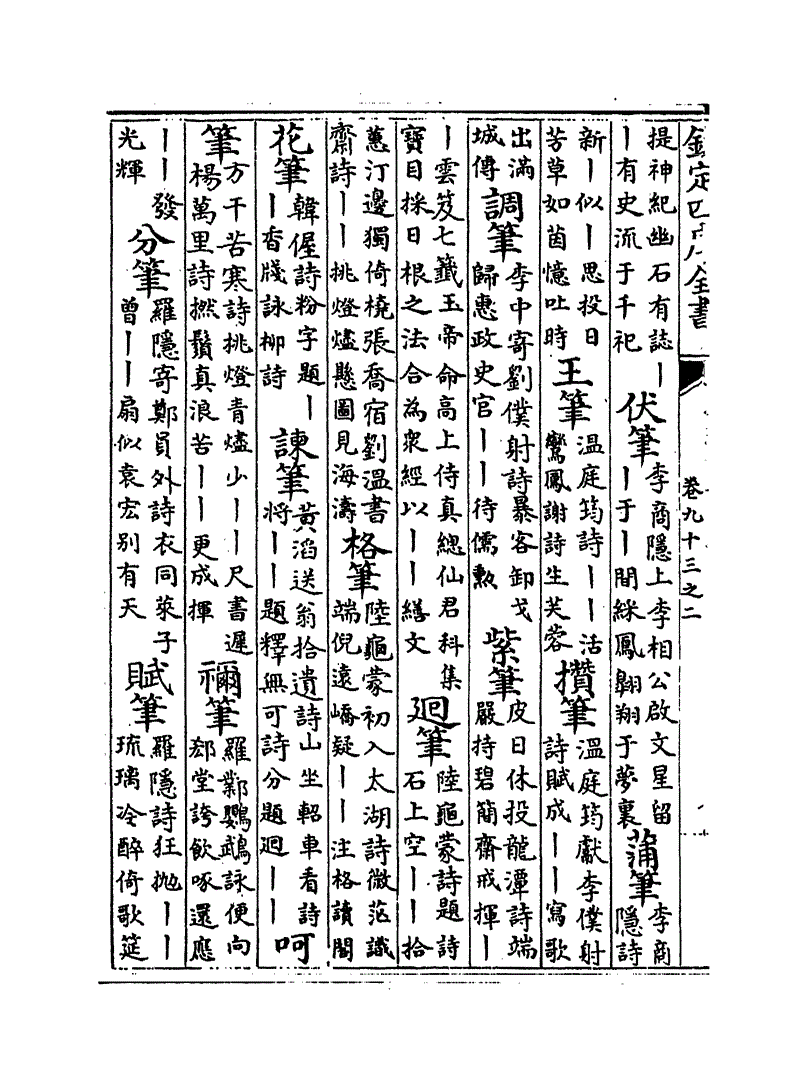 欽定四庫全書
卷九十三之二
提神紀幽石有誌｜
｜有史流于千祀
伏筆
李商隱上李相公啟文星留
｜于｜間綵鳳翱翔于夢裏
蒲筆
李商
隱詩
新｜似｜思投日
苦草如茵憶吐時
王筆
溫庭筠詩｜｜活
鸞鳳謝詩生芙蓉
攢筆
溫庭筠獻李僕射
詩賦成｜｜寫歌
出滿
城傳
調筆
李中寄劉僕射詩暴客卸戈
歸惠政史官｜｜待儒勲
紫筆
皮日休投龍潭詩端
嚴持碧簡齋戒揮｜
｜雲笈七籤玉帝命高上侍真總仙君科集
寶目採日根之法合為衆經以｜｜繕文
迴筆
陸龜蒙詩題詩
石上空｜｜拾
蕙汀邊獨倚橈張喬宿劉溫書
齋詩｜｜挑燈燼懸圖見海濤
格筆
陸龜蒙初入太湖詩微茫識
端倪遠嶠疑｜｜注格讀閣
花筆
韓偓詩粉字題｜
｜香牋詠柳詩
諫筆
黃滔送翁拾遺詩山坐軺車看詩
將｜｜題釋無可詩分題迴｜｜
呵
筆
方干苦寒詩挑燈青燼少｜｜尺書遲
楊萬里詩撚鬚真浪苦｜｜更成揮
禰筆
羅鄴鸚鵡詠便向
郄堂誇飲啄還應
｜｜發
光輝
分筆
羅隱寄鄭員外詩衣同萊子
曾｜｜扇似袁宏别有天
賦筆
羅隱詩狂抛｜｜
琉璃冷醉倚歌筵